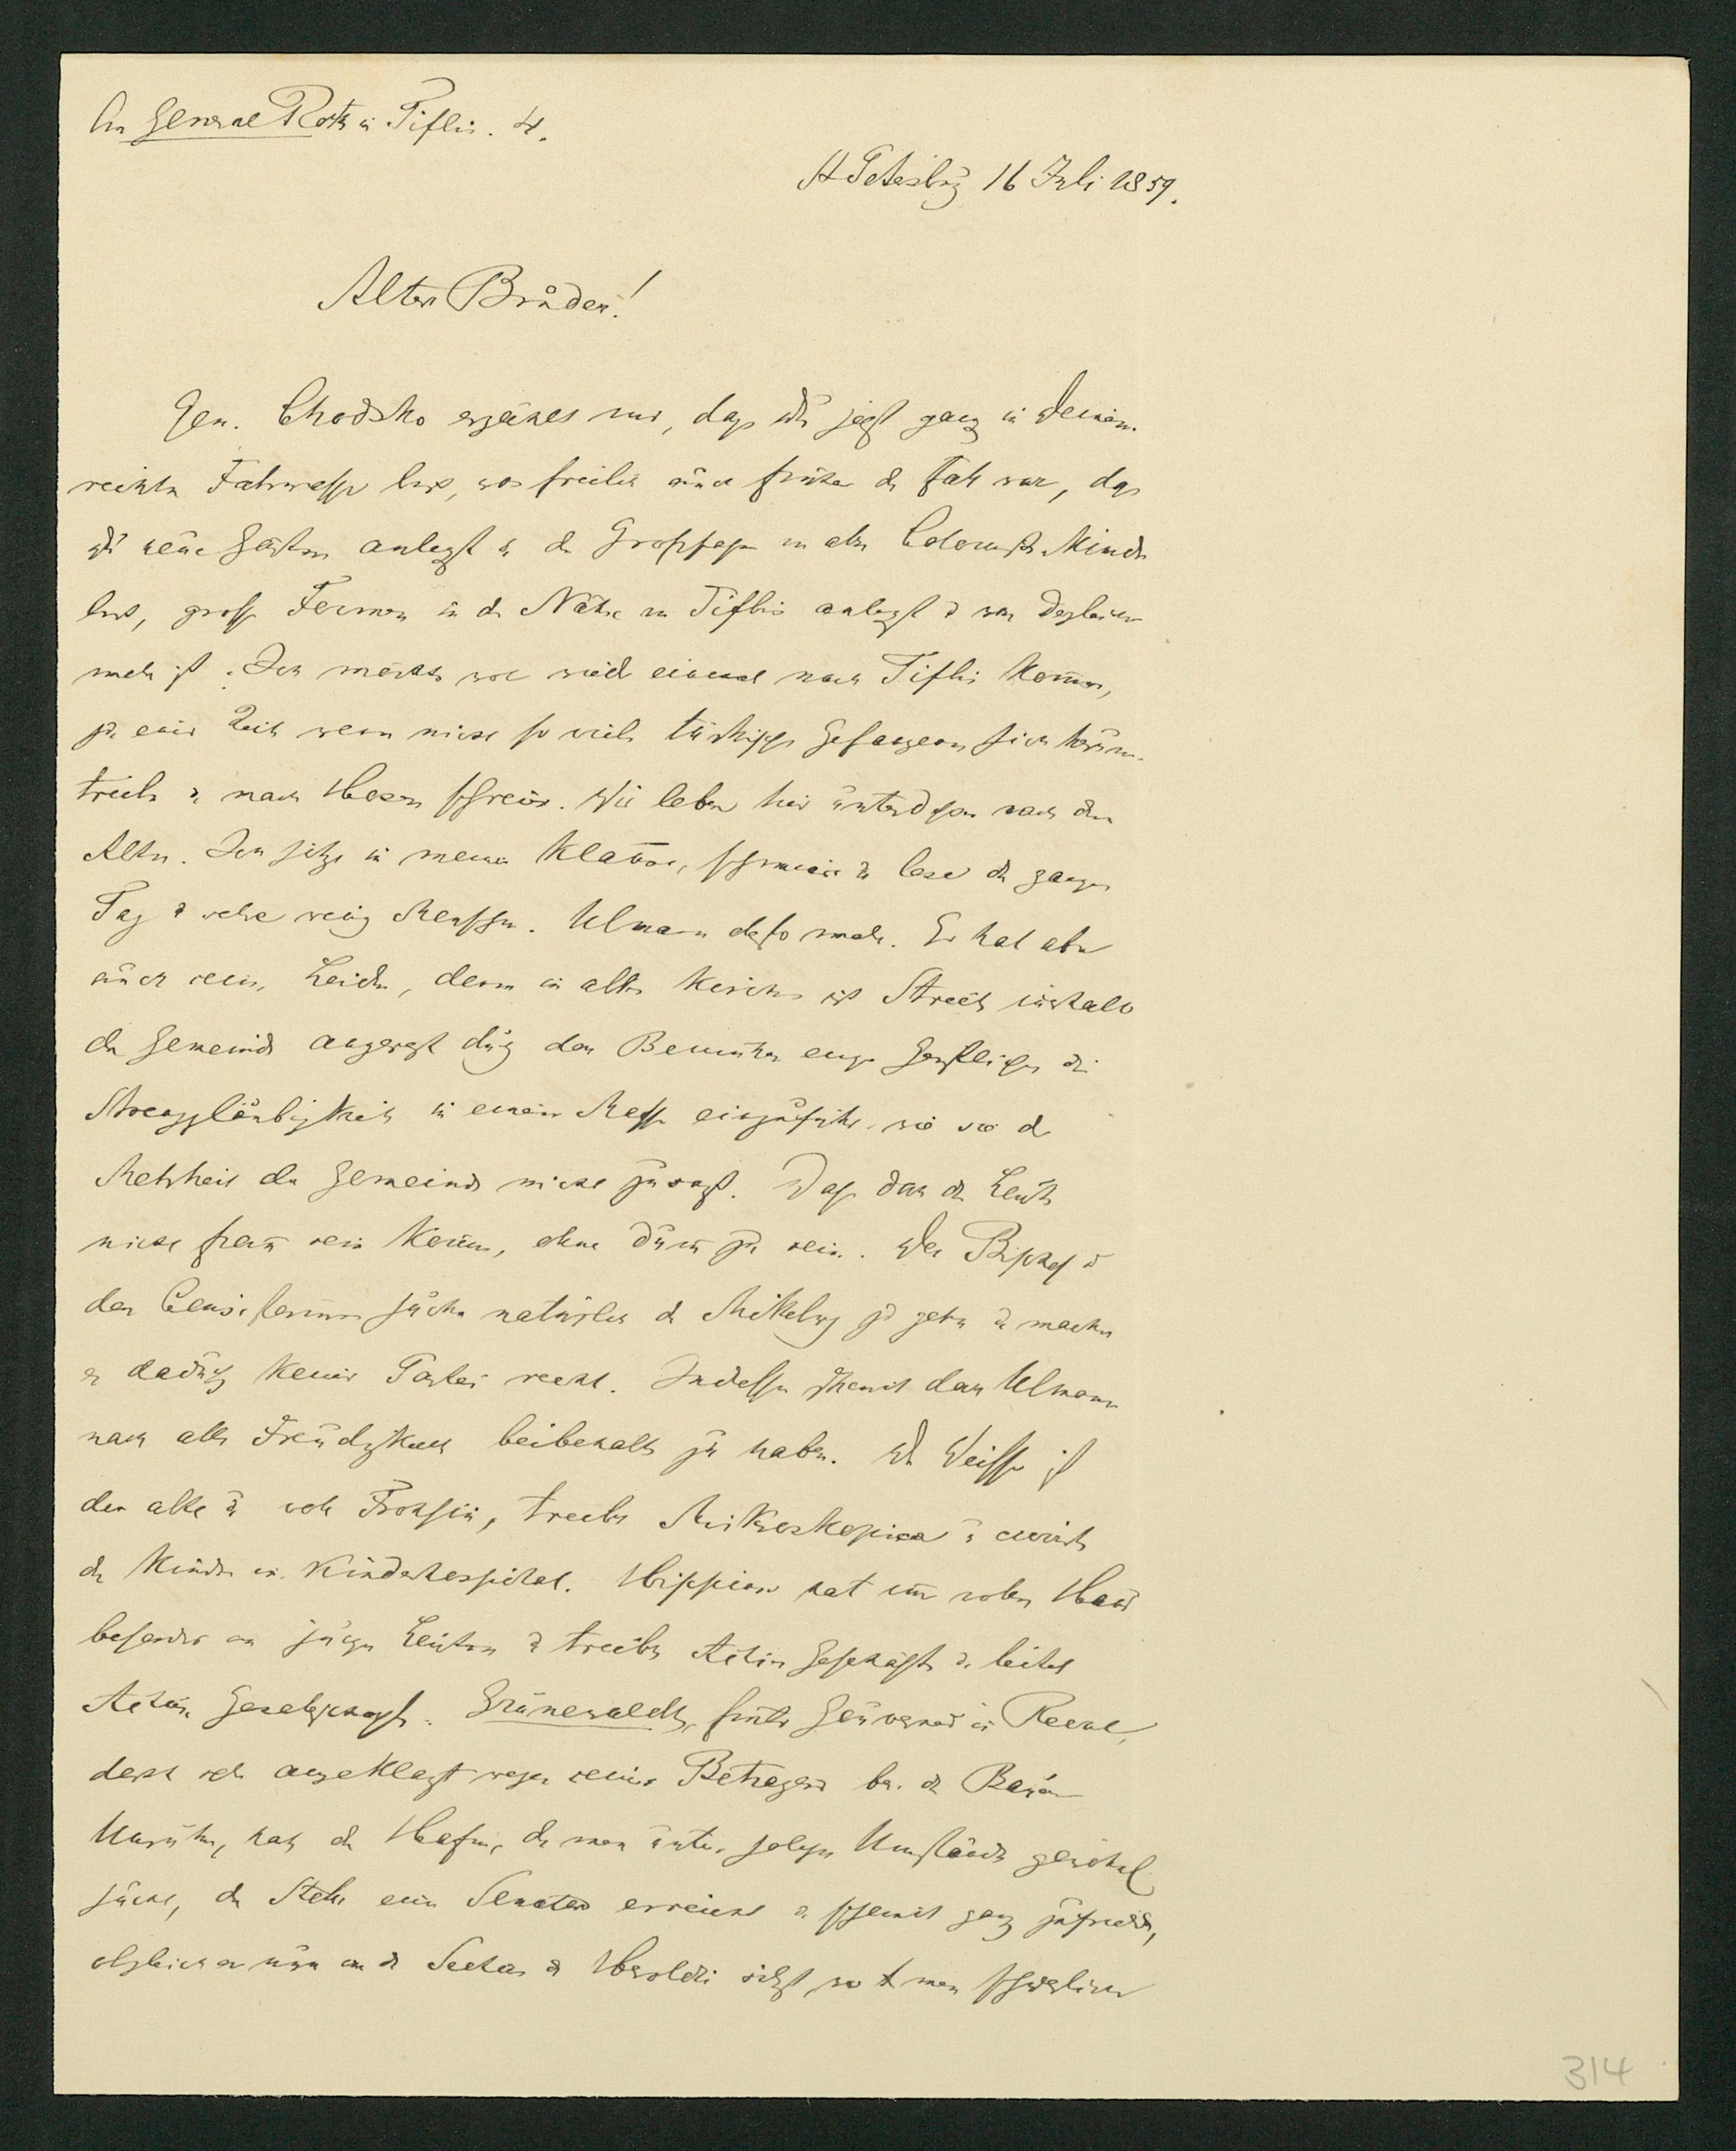 An General Roth in Tiflis. 4.
St Petersburg 16 Juli 1859.
Alter Bruder!
Gen. Chodzko erzählt mir, dass du jetzt ganz in deinem
rechten Fahrwasser bist, was freilich auch früher der Fall war, dass
du neue Gärten anlegst u der Grosspapa von allen Colonisten Kindern
bist, grosse Fermen in der Nähe von Tiflis anlegst u was dergleichen
mehr ist. Ich möchte wol wieder einmal nach Tiflis kommen,
zu einer Zeit wenn nicht so viele türkische Gefangene sich herum
treiben u nach Hosen schreien. Wir leben hier unterdessen nach dem
Alten. Ich sitze in meiner Klause, schreibe u lese den ganzen
Tag u sehe wenig Menschen. Ulmann desto mehr. Er hat aber
auch seine Leiden, denn in allen Kirchen ist Streit innerhalb
der Gemeinde angeregt durch das Bemühen einiger Geistlichen die
Strenggläubigkeit in einem Masse einzuführen wie sie der
Mehrheit der Gemeinde nicht zusagt. Dass doch die Leute
nicht fromm sein können, ohne dumm zu sein. Der Bischof u
das Consistorium suchen natürlich den Mittelweg zu gehen u machen
es dadurch keiner Partei recht. Indessen scheint doch Ulmann
noch alle Freudigkeit beibehalten zu haben. Dr Weisse ist
der alte u voll Frohsinn, treibt Mikroskopica u curirt
die Kinder im Kinderhospital. Hippius hat ein volles Haus
besonders an jungen Leuten u treibt Actien Geschäfte u leitet
Actien Gesellschaften. Grünewaldt, früher Gouverneur in Reval,
dort sehr angeklagt wegen seines Betragens bei den Bauern
Unruhen, hat den Hafen, den man unter solchen Umständen gewöhnl.
sucht, die Stelle eines Senators erreicht u scheint ganz zufrieden,
obgleich er nun in der Section der Heroldie sitzt, wo man schwerlich
314